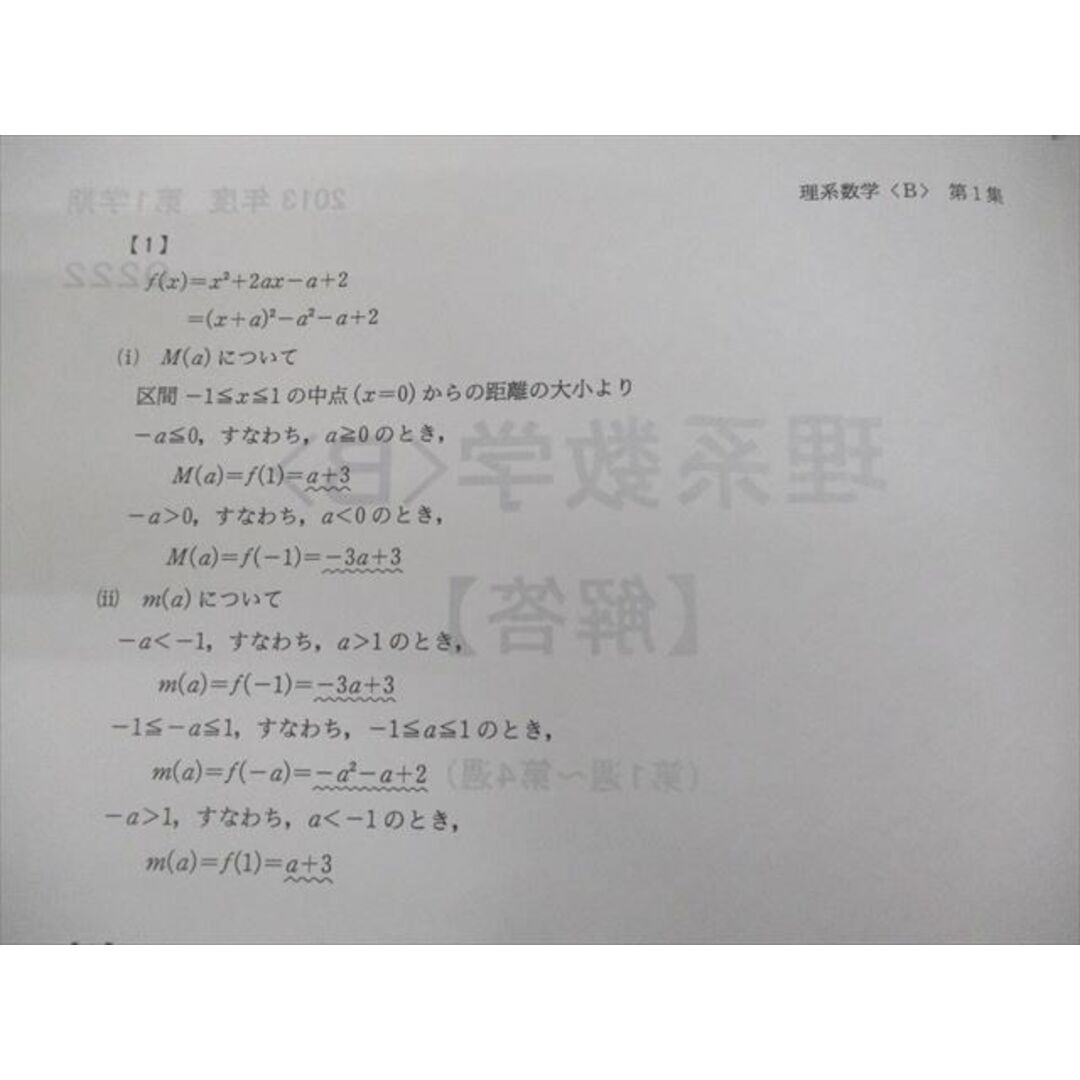 2013年度 第1学期
理系数学〈B〉 第1集
【1】
Q222
f(x)=x²+2ax−a+2
=(x+a)²−a²−a+2
(i) M(a)について
区間 −1≦x≦1の中点(x=0)からの距離の大小より
−a≦0, すなわち, a≧0のとき,
M(a)=f(1)=a+3
−a>0, すなわち, a<0のとき,
M(a)=f(−1)=−3a+3
理系数学〈B〉
(ii) m(a)について
【解答】
−a<−1, すなわち, a>1のとき,
m(a)=f(−1)=−3a+3
−1≦−a≦1, すなわち, −1≦a≦1のとき,
m(a)=f(−a)=−a²−a+2
(第1週〜第4週)
−a>1, すなわち, a<−1のとき,
m(a)=f(1)=a+3